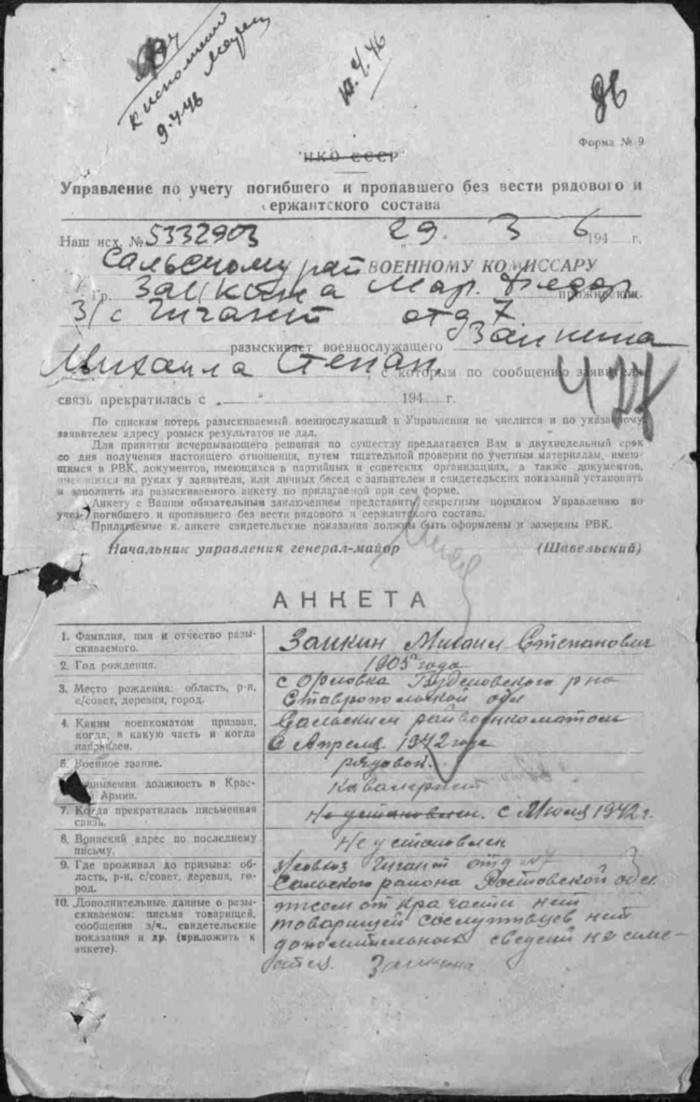 к исполнению
9.4.46
10.4.46
Форма № 9
НКО СССР
Управление по учету погибшего и пропавшего без вести рядового и
сержантского состава
Наш исх. № 5332903 „29„ 3 1946 г.
Сальскому рай ВОЕННОМУ КОМИССАРУ
Гр. Заикина Мар. Федор прожив
З/с Гигант отд 7
разыскивает военнослужащего Заикина
Михаила Степан, с которым по сообщению заявителя
связь прекратилась с „ 194 г.
По спискам потерь разыскиваемый военнослужащий в Управлении не числится и по указанному
заявителем адресу розыск результатов не дал.
Для принятия исчерпывающего решения по существу предлагается Вам в двухнедельный срок
со дня получения настоящего отношения, путем тщательной проверки по учетным материалам, имею-
щимся в РВК, документов, имеющихся в партийных и советских организациях, а также документов,
имеющихся на руках у заявителя, или личных бесед с заявителем и свидетельских показаний установить
и заполнить на разыскиваемого анкету по прилагаемой при сем форме.
Анкету с Вашим обязательным заключением представить секретным порядком Управлению по
учету погибшего и пропавшего без вести рядового и сержантского состава.
Прилагаемые к анкете свидетельские показания должны быть оформлены и заверены РВК.
Начальник управления генерал-майор (Шавельский)
АНКЕТА
1. Фамилия, имя и отчество разы-
скиваемого.
Заикин Михаил Степанович
2. Год рождения.
1905 года
3. Место рождения: область, р-н,
с/совет, деревня, город.
с Орловка Буденовского р-на
Ставропольской обл
4. Каким военкоматом призван,
когда, в какую часть и когда
направлен.
Сальским райвоенкоматом
с Апреля 1942 года
5. Военное звание.
рядовой.
Занимаемая должность в Крас-
ной Армии.
Кавалерист
7. Когда прекратилась письменная
связь.
Не установлен. с Июля 1942 г.
8. Воинский адрес по последнему
письму.
Не установлен
9. Где проживал до призыва: об-
ласть, р-н, с/совет, деревня, го-
род.
Гигант отд №7
Сальского района Ростовской обл
10. Дополнительные данные о разы-
скиваемом: письма товарищей,
сообщения з/ч., свидетельские
показания и др. (приложить к
анкете).
писем от кр части нет
товарищей сослуживцев нет
дополнительных сведений не име-
ется. Заикина